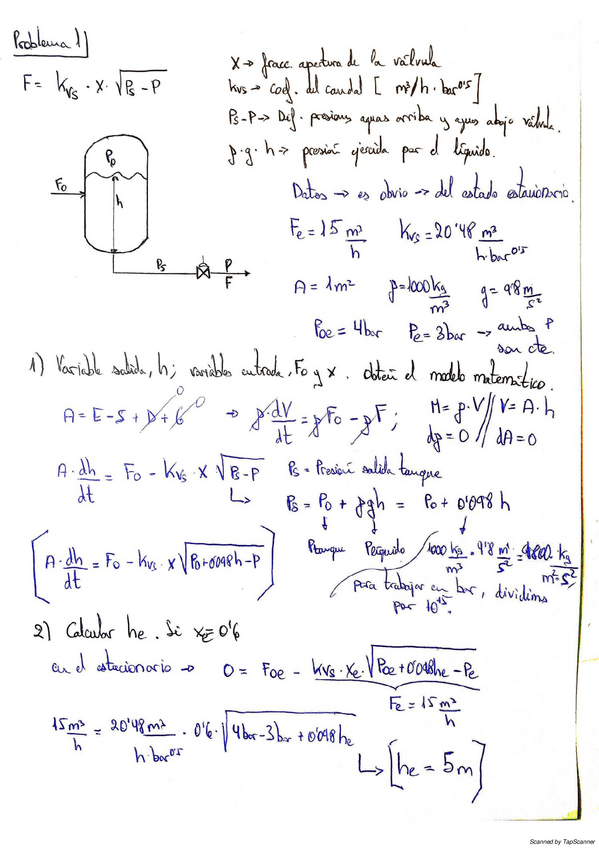 Problema 1)
F = Kvs · x · √Ps - P
x → fracc. apertura de la válvula
Kvs → coef. del caudal [ m³/h · bar^0'5 ]
Ps-P → Dif. presiones aguas arriba y aguas abajo válvula.
ρ·g·h → presión ejercida por el líquido.
P0
F0
h
Ps
P
F
Datos → es obvio → del estado estacionario.
Fe = 15 m³/h Kvs = 20'48 m³/h·bar^0'5
A = 1m² ρ = 1000 kg/m³ g = 9'8 m/s²
P0e = 4bar Pe = 3bar → ambas P son cte.
1) Variable salida, h; variables entrada, F0 y x. obtén el modelo matemático.
A = E - S + D + G 0 0 → ρ·dV/dt = ρF0 - ρF; M = ρ·V // V = A·h
dρ = 0 // dA = 0
A·dh/dt = F0 - Kvs · x √Ps-P Ps = Presión salida tanque
Ps = P0 + ρgh = P0 + 0'098 h
Ptanque Plíquido 1000 kg/m³ · 9'8 m/s² = 9800 kg/m²·s²
para trabajar en bar, dividimos por 10^+5.
[ A·dh/dt = F0 - Kvs · x √P0+0'098h-P ]
2) Calcular he. Si xe = 0'6
en el estacionario → 0 = F0e - Kvs · xe · √P0e + 0'098he - Pe
Fe = 15 m³/h
15 m³/h = 20'48 m³/h·bar^0'5 · 0'6 · √4bar - 3bar + 0'098 he
↳ [ he = 5m ]
Scanned by TapScanner